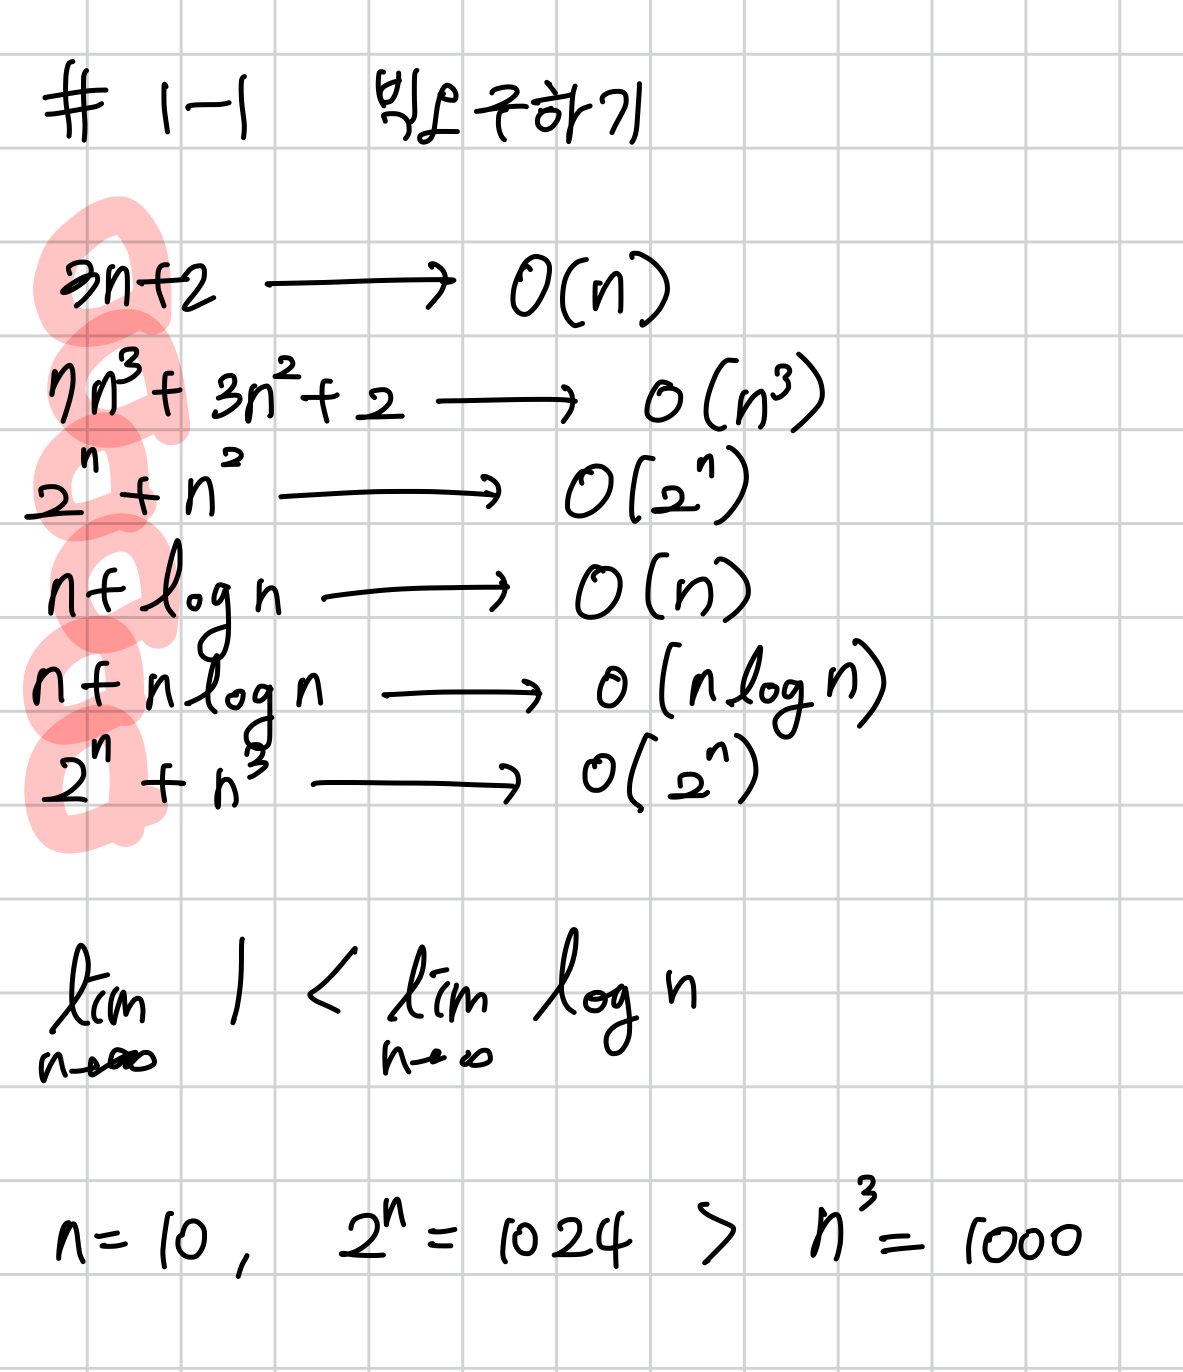 # 1-1 빅오 구하기
3n+2 → O(n)
7n³ + 3n² + 2 → O(n³)
2ⁿ + n² → O(2ⁿ)
n + log n → O(n)
n + n log n → O(n log n)
2ⁿ + n³ → O(2ⁿ)
lim 1 < lim log n
n→∞ n→∞
n = 10, 2ⁿ = 1024 > n³ = 1000